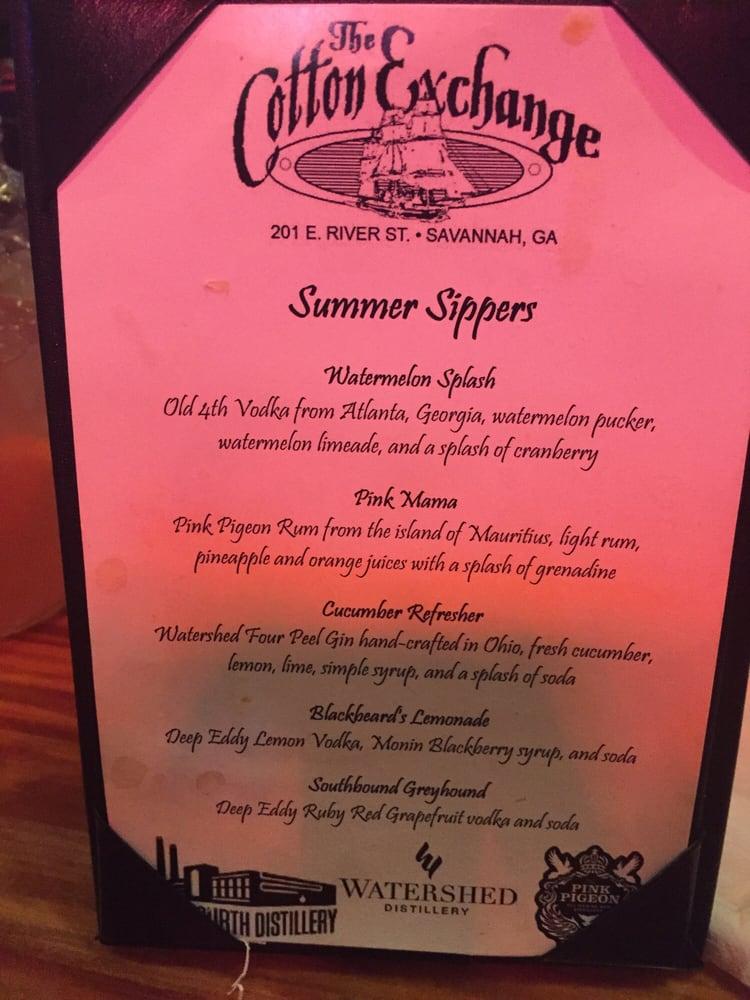 The
Cotton Exchange
201 E. RIVER ST. • SAVANNAH, GA
Summer Sippers
Watermelon Splash
Old 4th Vodka from Atlanta, Georgia, watermelon pucker,
watermelon limeade, and a splash of cranberry
Pink Mama
Pink Pigeon Rum from the island of Mauritius, light rum,
pineapple and orange juices with a splash of grenadine
Cucumber Refresher
Watershed Four Peel Gin hand-crafted in Ohio, fresh cucumber,
lemon, lime, simple syrup, and a splash of soda
Blackbeard's Lemonade
Deep Eddy Lemon Vodka, Monin Blackberry syrup, and soda
Southbound Greyhound
Deep Eddy Ruby Red Grapefruit vodka and soda
DISTILLERY
WATERSHED
DISTILLERY
PINK
PIGEON